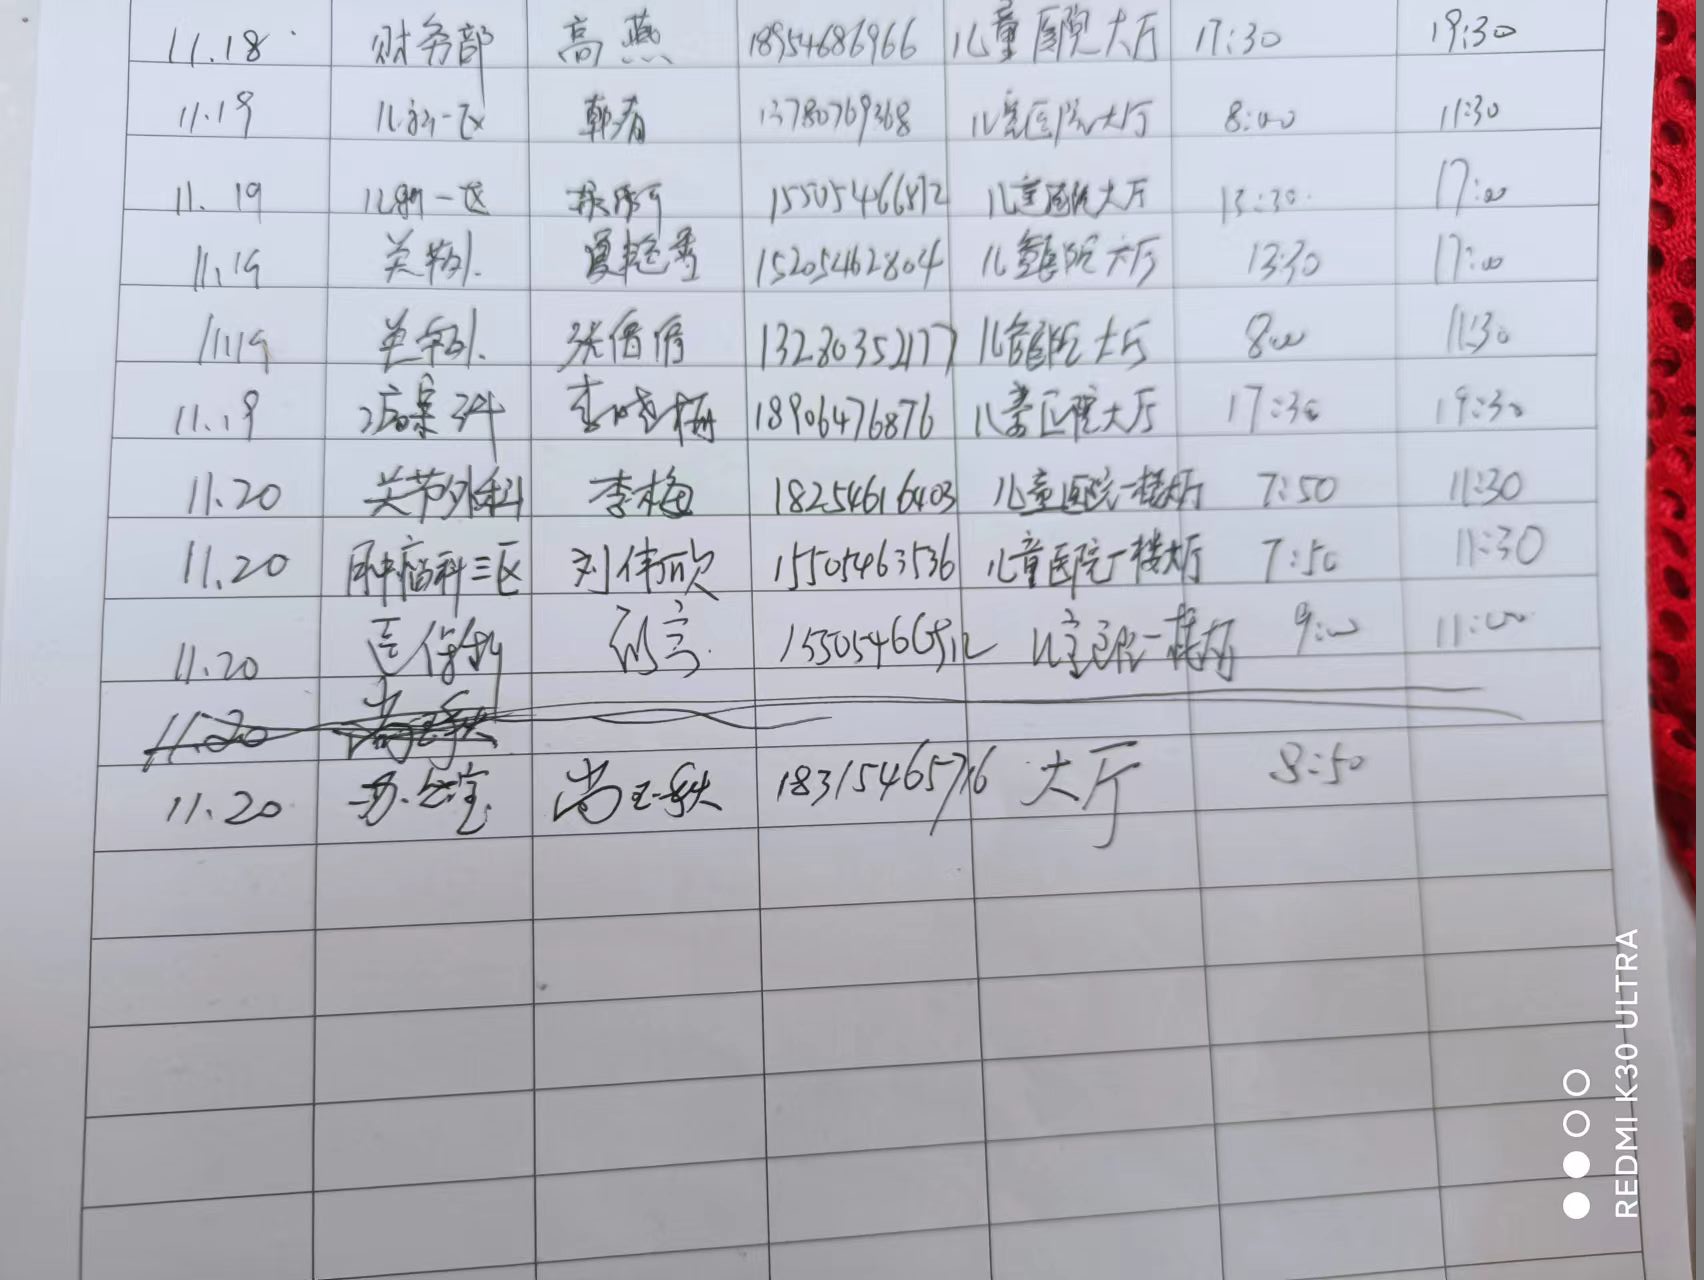 11.18 财务部 高燕 18954686966 儿童医院大厅 17:30 19:30
11.19 一区 韩 13780769368 儿童医院大厅 8:00 11:30
11.19 一区 15505466872 儿童医院大厅 13:30 17:00
11.19 15205462804 儿童医院大厅 13:30 17:00
11.19 张倩倩 13280352177 儿童医院大厅 8:00 11:30
11.19 病案科 李晓梅 18906476876 儿童医院大厅 17:30 19:30
11.20 关节外科 李梅 18254616403 儿童医院一楼大厅 7:50 11:30
11.20 肿瘤科三区 刘伟欣 15505463536 儿童医院一楼大厅 7:50 11:30
11.20 医保科 儿童医院一楼大厅 9:00 11:00
11.20 尚玉秋
11.20 办公室 尚玉秋 18315465716 大厅 8:50
REDMI K30 ULTRA